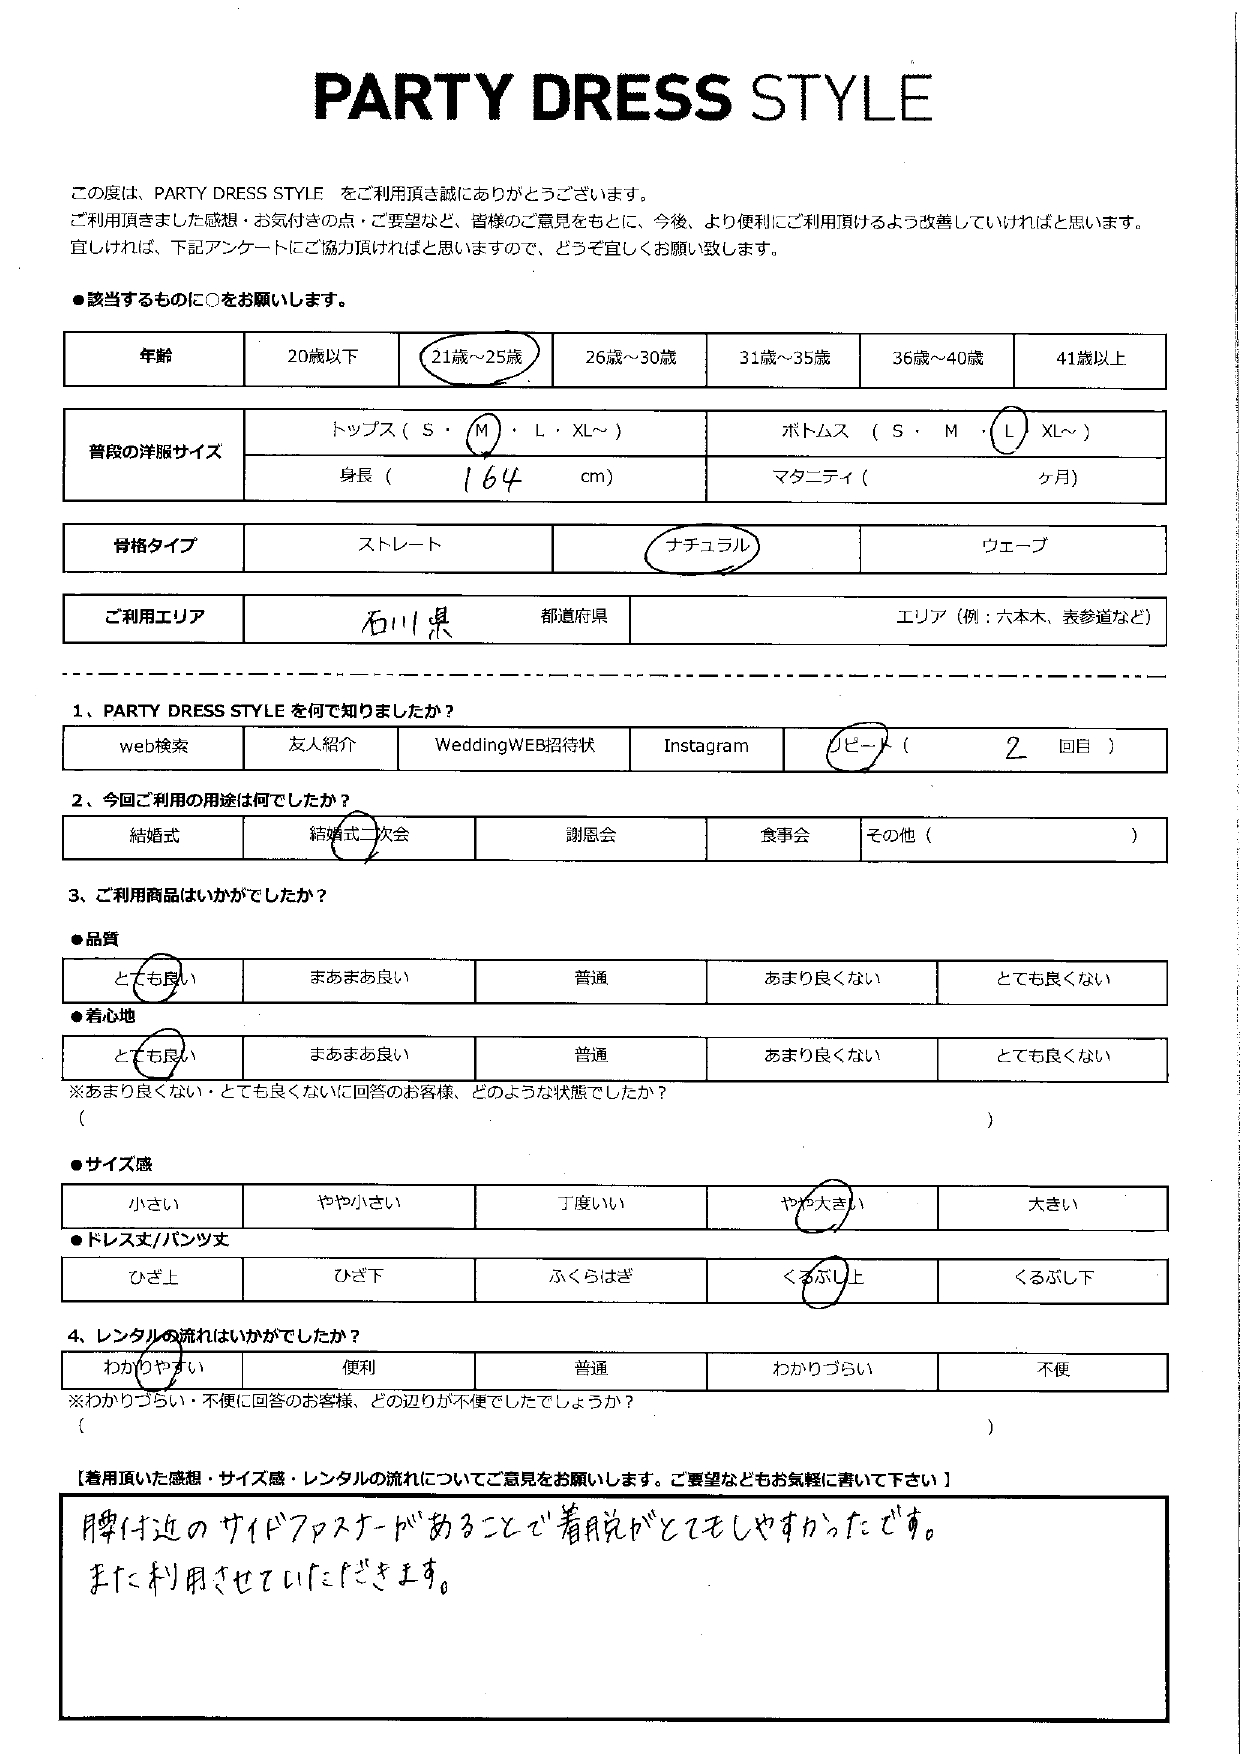 PARTY DRESS STYLE
この度は、PARTY DRESS STYLE をご利用頂き誠にありがとうございます。
ご利用頂きました感想・お気付きの点・ご要望など、皆様のご意見をもとに、今後、より便利にご利用頂けるよう改善していければと思います。
宜しければ、下記アンケートにご協力頂ければと思いますので、どうぞ宜しくお願い致します。
●該当するものに○をお願いします。
年齢 20歳以下 21歳～25歳 26歳～30歳 31歳～35歳 36歳～40歳 41歳以上
普段の洋服サイズ
トップス ( S ・ M ・ L ・ XL～ ) ボトムス ( S ・ M ・ L XL～ )
身長 ( 164 cm) マタニティ ( ヶ月)
骨格タイプ ストレート ナチュラル ウェーブ
ご利用エリア 石川県 都道府県 エリア（例：六本木、表参道など）
1、PARTY DRESS STYLE を何で知りましたか？
web検索 友人紹介 WeddingWEB招待状 Instagram リピート ( 2 回目 )
2、今回ご利用の用途は何でしたか？
結婚式 結婚式二次会 謝恩会 食事会 その他 ( )
3、ご利用商品はいかがでしたか？
●品質
とても良い まあまあ良い 普通 あまり良くない とても良くない
●着心地
とても良い まあまあ良い 普通 あまり良くない とても良くない
※あまり良くない・とても良くないに回答のお客様、どのような状態でしたか？
( )
●サイズ感
小さい やや小さい 丁度いい やや大きい 大きい
●ドレス丈/パンツ丈
ひざ上 ひざ下 ふくらはぎ くるぶし上 くるぶし下
4、レンタルの流れはいかがでしたか？
わかりやすい 便利 普通 わかりづらい 不便
※わかりづらい・不便に回答のお客様、どの辺りが不便でしたでしょうか？
( )
【着用頂いた感想・サイズ感・レンタルの流れについてご意見をお願いします。ご要望などもお気軽に書いて下さい】
腰付近のサイドファスナーがあることで着脱がとてもしやすかったです。
また利用させていただきます。